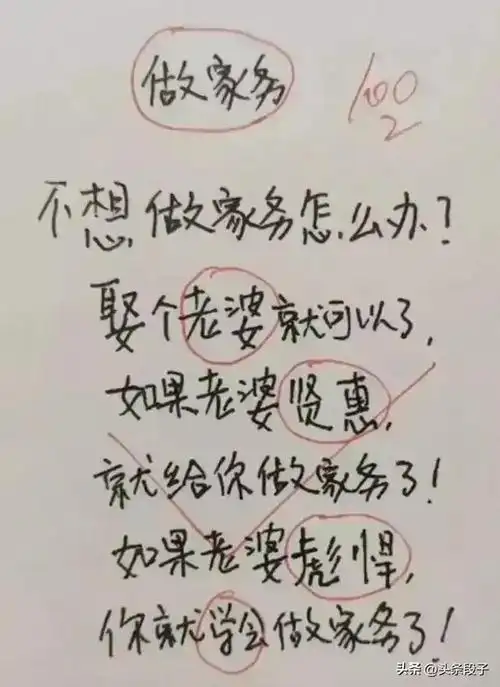 做家务
100
2
不想做家务怎么办?
娶个老婆就可以了,
如果老婆贤惠,
就给你做家务了!
如果老婆彪悍,
你就学会做家务了!
头条 @头条段子